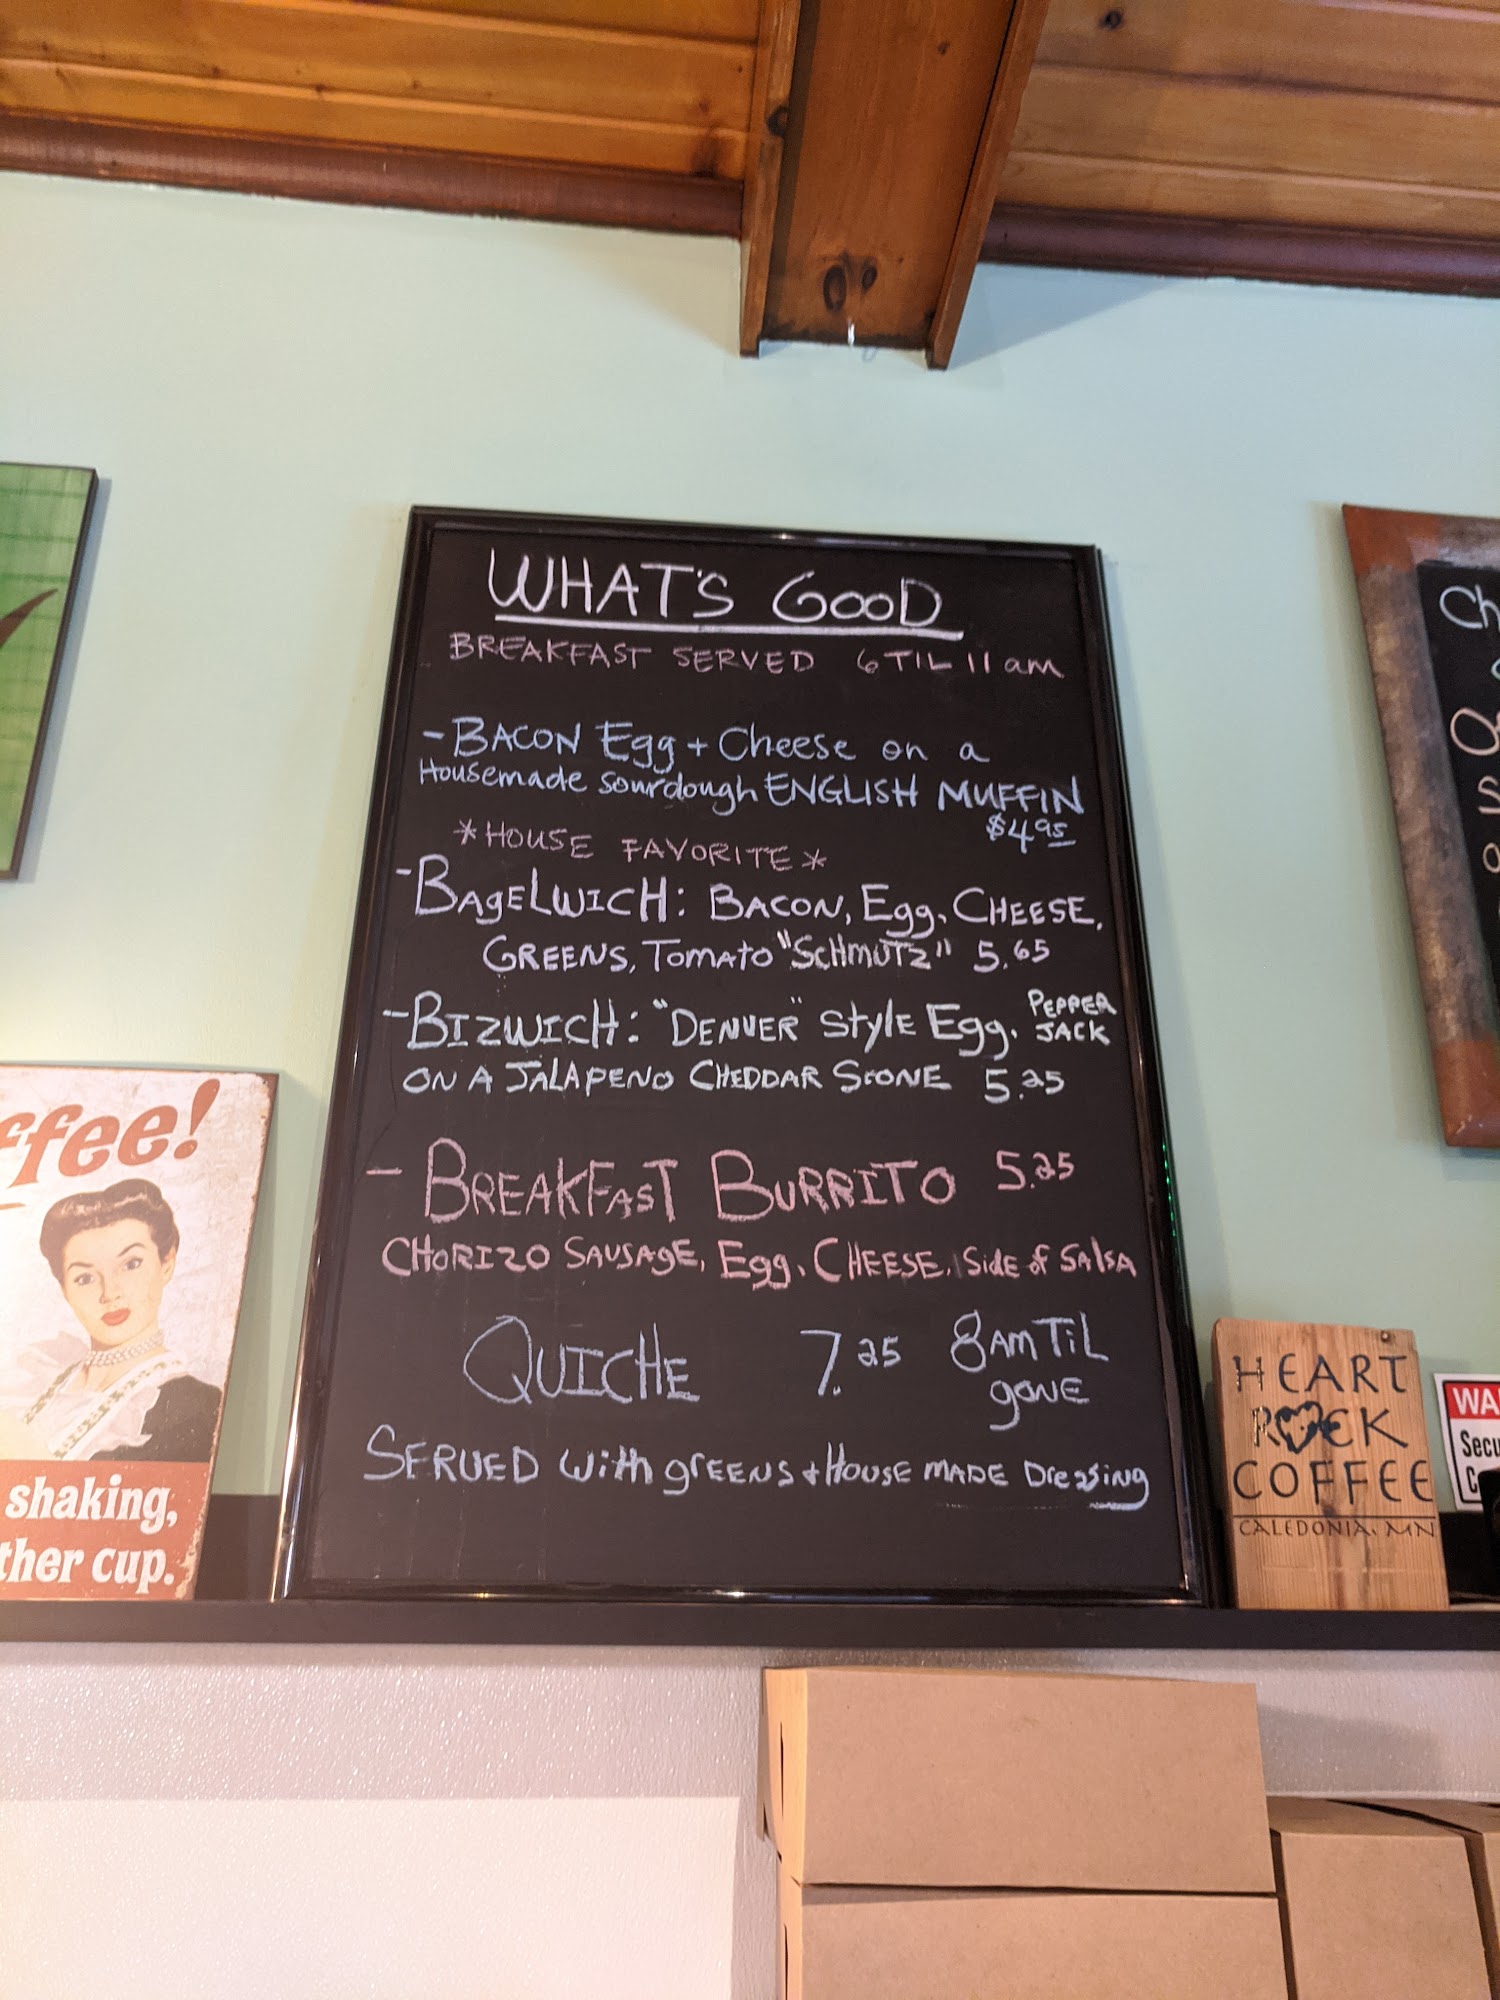 WHAT'S GOOD
BREAKFAST SERVED 6 TIL 11 am
- BACON Egg + Cheese on a
Housemade sourdough ENGLISH MUFFIN
$4.95
*HOUSE FAVORITE*
- BAgELWICH: BACON, Egg, CHEESE,
GREENS, TOMATO "SCHMUTZ" 5.65
- BIZWICH: "DENVER" STYLE Egg, PEPPER
JACK
ON A JALAPENO CHEDDAR SCONE 5.25
- BREAKFAST BURRITO 5.25
CHORIZO SAUSAGE, Egg, CHEESE, SidE of SAlSA
QUICHE 7.25 8AM TiL
gONE
SERVED with gREENS + HOUSE MADE Dressing
ffee!
shaking,
ther cup.
HEART
ROCK
COFFEE
CALEDONIA, MN
WA
Secu
C
Ch
S